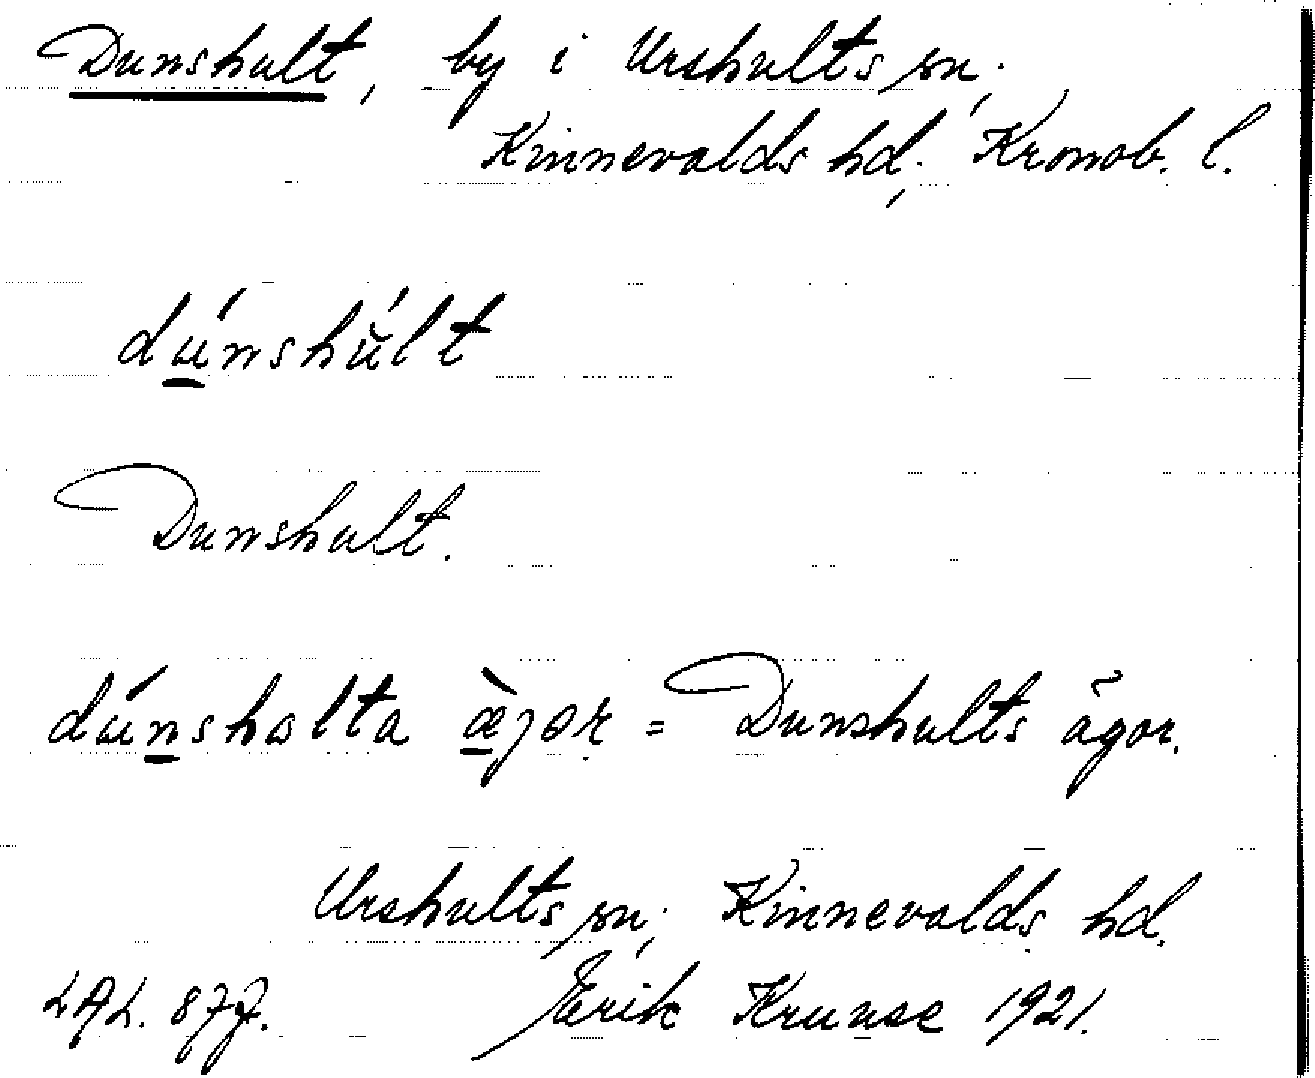 Dunshult, by i Urshults sn.,
Kinnevalds hd., Kronob. l.
dúnshŭ́lt
Dunshult.
dúnshɷlta æ̀jɷr = Dunshults ägor.
Urshults sn., Kinnevalds hd.
Erik Krunse 1921.